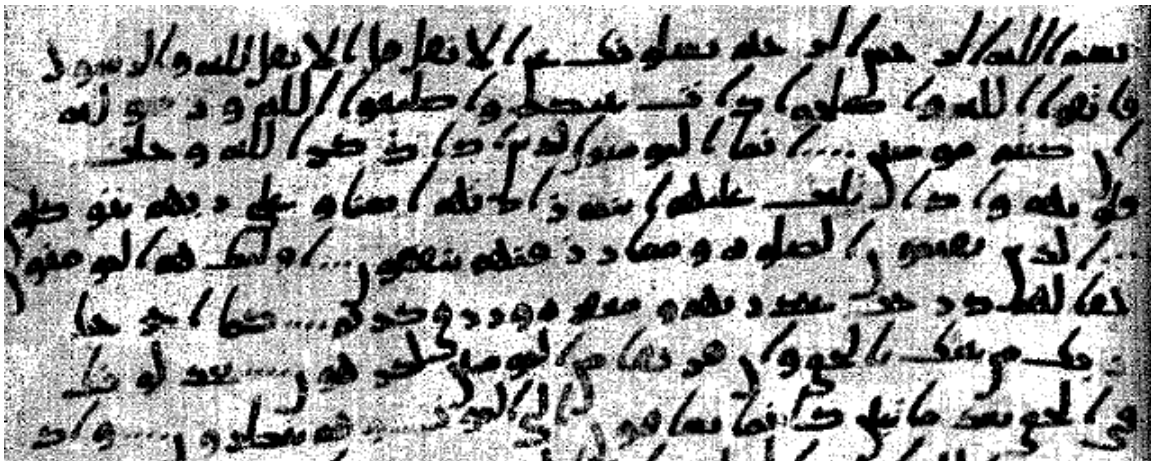 بسم الله الرحمن الرحيم يسلونك عن الانفل قل الانفل لله والرسول
فاتقوا الله واصلحوا ذات بينكم واطيعوا الله ورسوله
ان كنتم مومنين انما المومنون الذين اذا ذكر الله وجلت
قلوبهم واذا تليت عليهم ايته زادتهم ايمنا وعلى ربهم يتوكلون
الذين يقيمون الصلوة ومما رزقنهم ينفقون اولئك هم المومنون
حقا لهم درجت عند ربهم ومغفرة ورزق كريم كما اخرجك
ربك من بيتك بالحق وان فريقا من المومنين لكرهون يجدلونك
في الحق بعد ما تبين كانما يساقون الى الموت وهم ينظرون واذ